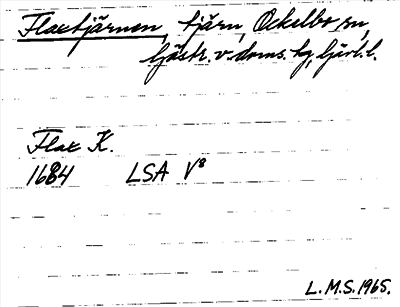 Flaxtjärnen, tjärn, Ockelbo sn,
Gästr. v. doms. hg, Gävl. l.
Flax K.
1684 LSA V⁸
L.M.S. 1965.